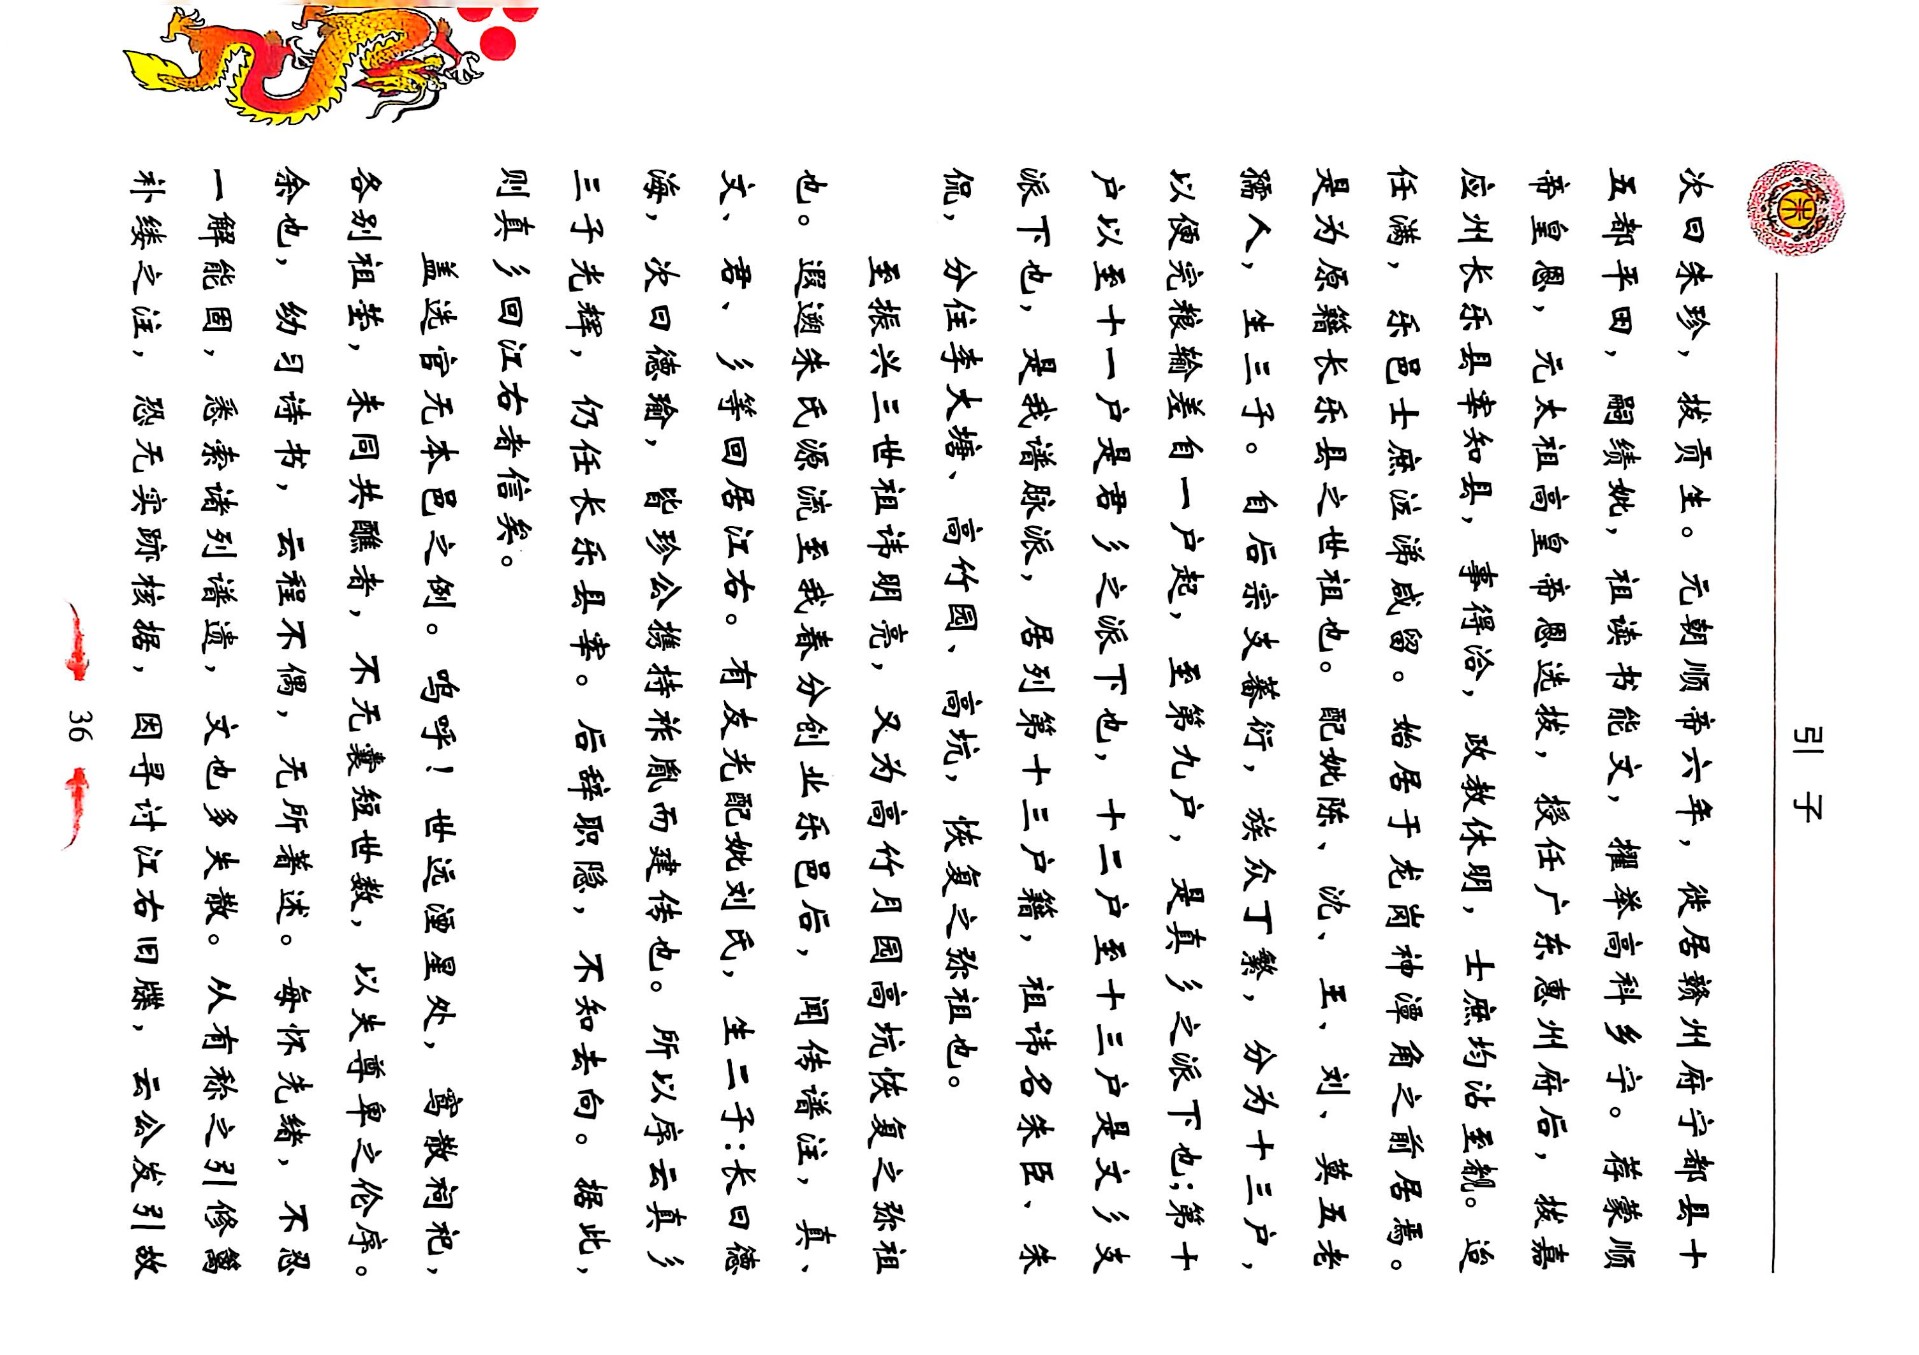 引子
次曰朱珍，拔贡生。元朝顺帝六年，徙居赣州府宁都县十
五都平田，嗣绩妣，祖读书能文，擢举高科乡宁。荐蒙顺
帝皇恩，元太祖高皇帝恩选拔，授任广东惠州府后，拔嘉
应州长乐县宰知县，事得洽，政教休明，士庶均沾至觐。迨
任满，乐邑士庶泣涕咸留。始居于龙岗神潭角之前居焉。
是为原籍长乐县之世祖也。配妣陈、沈、王、刘、莫五老
孺人，生三子。自后宗支蕃衍，族众丁繁，分为十三户，
以便完粮输差自一户起，至第九户，是真彡之派下也；第十
户以至十一户是君彡之派下也，十二户至十三户是文彡支
派下也，是我谱脉派，居列第十三户籍，祖讳名朱臣、朱
侃，分住李大塘、高竹园、高坑，恢复之弥祖也。
至振兴三世祖讳明亮，又为高竹月园高坑恢复之弥祖
也。遐遡朱氏源流至我春分创业乐邑后，闻传谱注，真、
文、君、彡等回居江右。有友光配妣刘氏，生二子：长曰德
海，次曰德瑜，皆珍公携持祚胤而建传也。所以序云真彡
三子光辉，仍任长乐县宰。后辞职隐，不知去向。据此，
则真彡回江右者信矣。
盖选官无本邑之例。呜呼！世远湮星处，窎散祠祀，
各别祖茔，未同共醮者，不无囊短世数，以失尊卑之伦序。
余也，幼习诗书，云程不偶，无所著述。每怀先绪，不忍
一解能固，悉索诸列谱遗，文也多失散。从有称之引修篱
补缕之注，恐无实跡核据，因寻讨江右旧牒，云公发引故
36